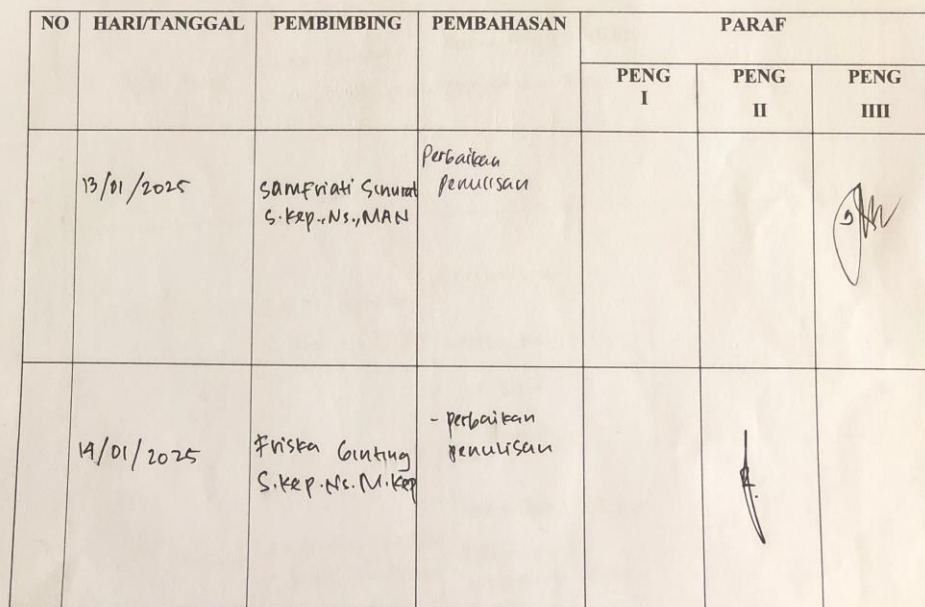 NO HARI/TANGGAL PEMBIMBING PEMBAHASAN PARAF
PENG I PENG II PENG IIII
13/01/2025
Samfriati Sinurat
S.Kep.,Ns.,MAN
Perbaikan
penulisan
14/01/2025
Friska Ginting
S.Kep.Ns.M.Kep
- perbaikan
penulisan